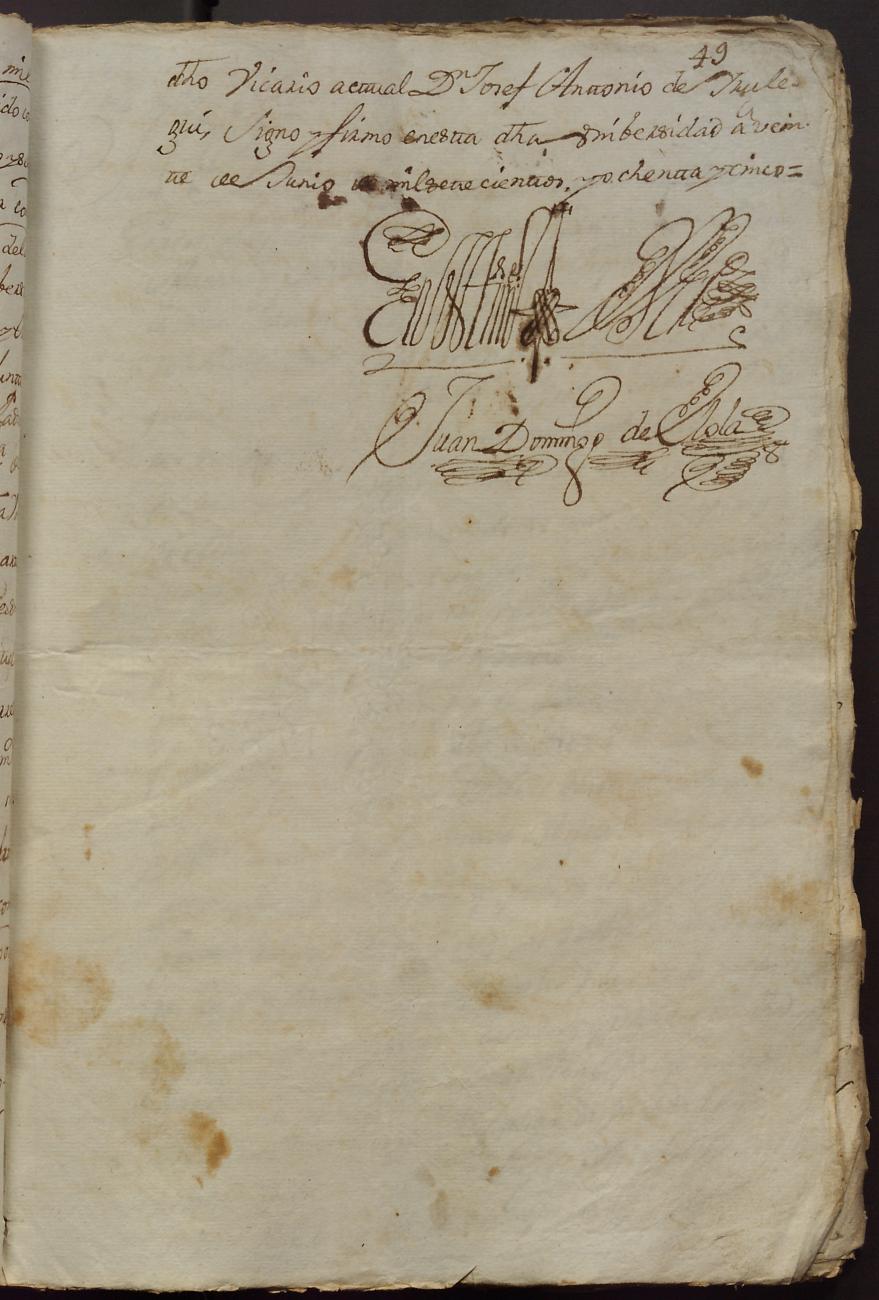 49
dho Vicario actual Dn Josef Antonio de
gui, Signo y firmo enesta dha Vnibersidad a vein
te de Junio de mil sete cientos, y ochenta y cinco=
En testimo de Verd
Juan Domingo de Elola